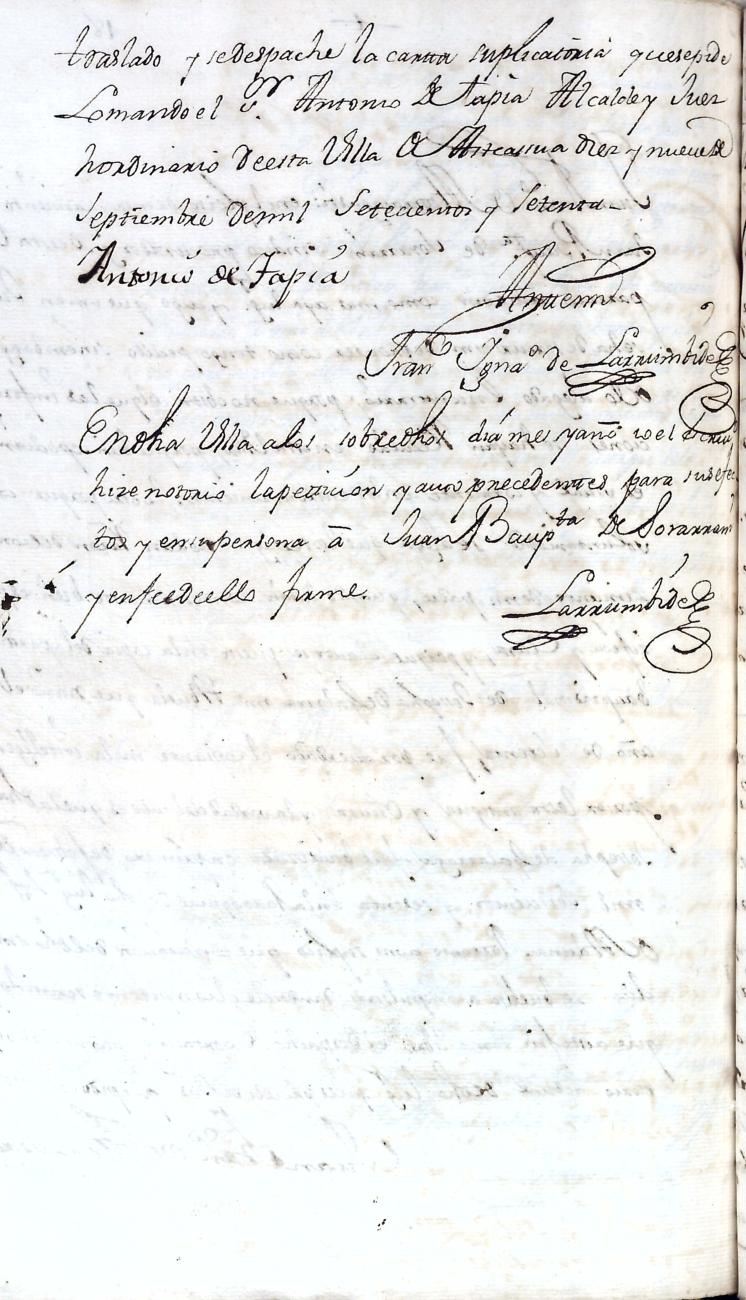 traslado y sedespache la cartta suplicatoria que se pide
Lomando el S.or Antonio de tapia Alcalde y Juez
hordinario de esta Villa de Atcassua diez y nueve de
septiembre de mil Setecientos y Setenta
Antonio de Tapia Antemi
Fran.co Igna.o de Larrumbide
En dha Villa a los sobredhos dia mes y año yo el escriv.o
hize notorio la petticion y auto precedenttes para sus efec
tos y en su persona â Juan Baup.ta de Sorarrain
y en fee de ello firme.
Larrumbide